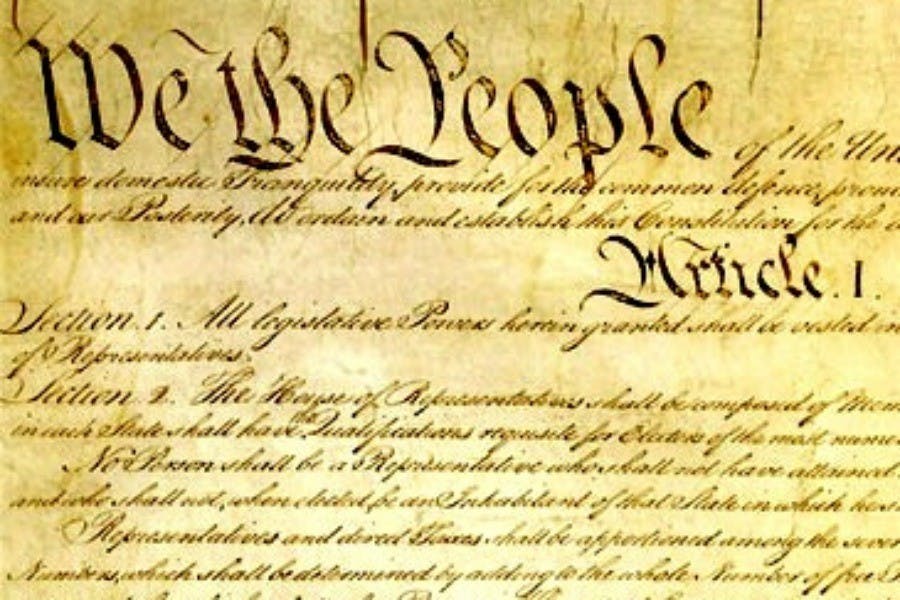 We the People of the Un
insure domestic Tranquility, provide for the common defence, promo
and our Posterity, do ordain and establish this Constitution for the
Article. I.
Section. 1. All legislative Powers herein granted shall be vested in
of Representatives.
Section. 2. The House of Representatives shall be composed of Mem
in each State shall have Qualifications requisite for Electors of the most nume
No Person shall be a Representative who shall not have attained
and who shall not, when elected, be an Inhabitant of that State in which he s
Representatives and direct Taxes shall be apportioned among the sever
Numbers, which shall be determined by adding to the whole Number of free